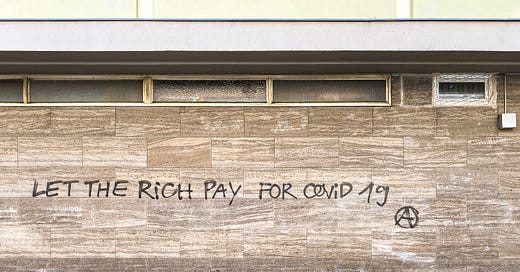 LET THE RiCH PAY FOR COViD 19
Ⓐ